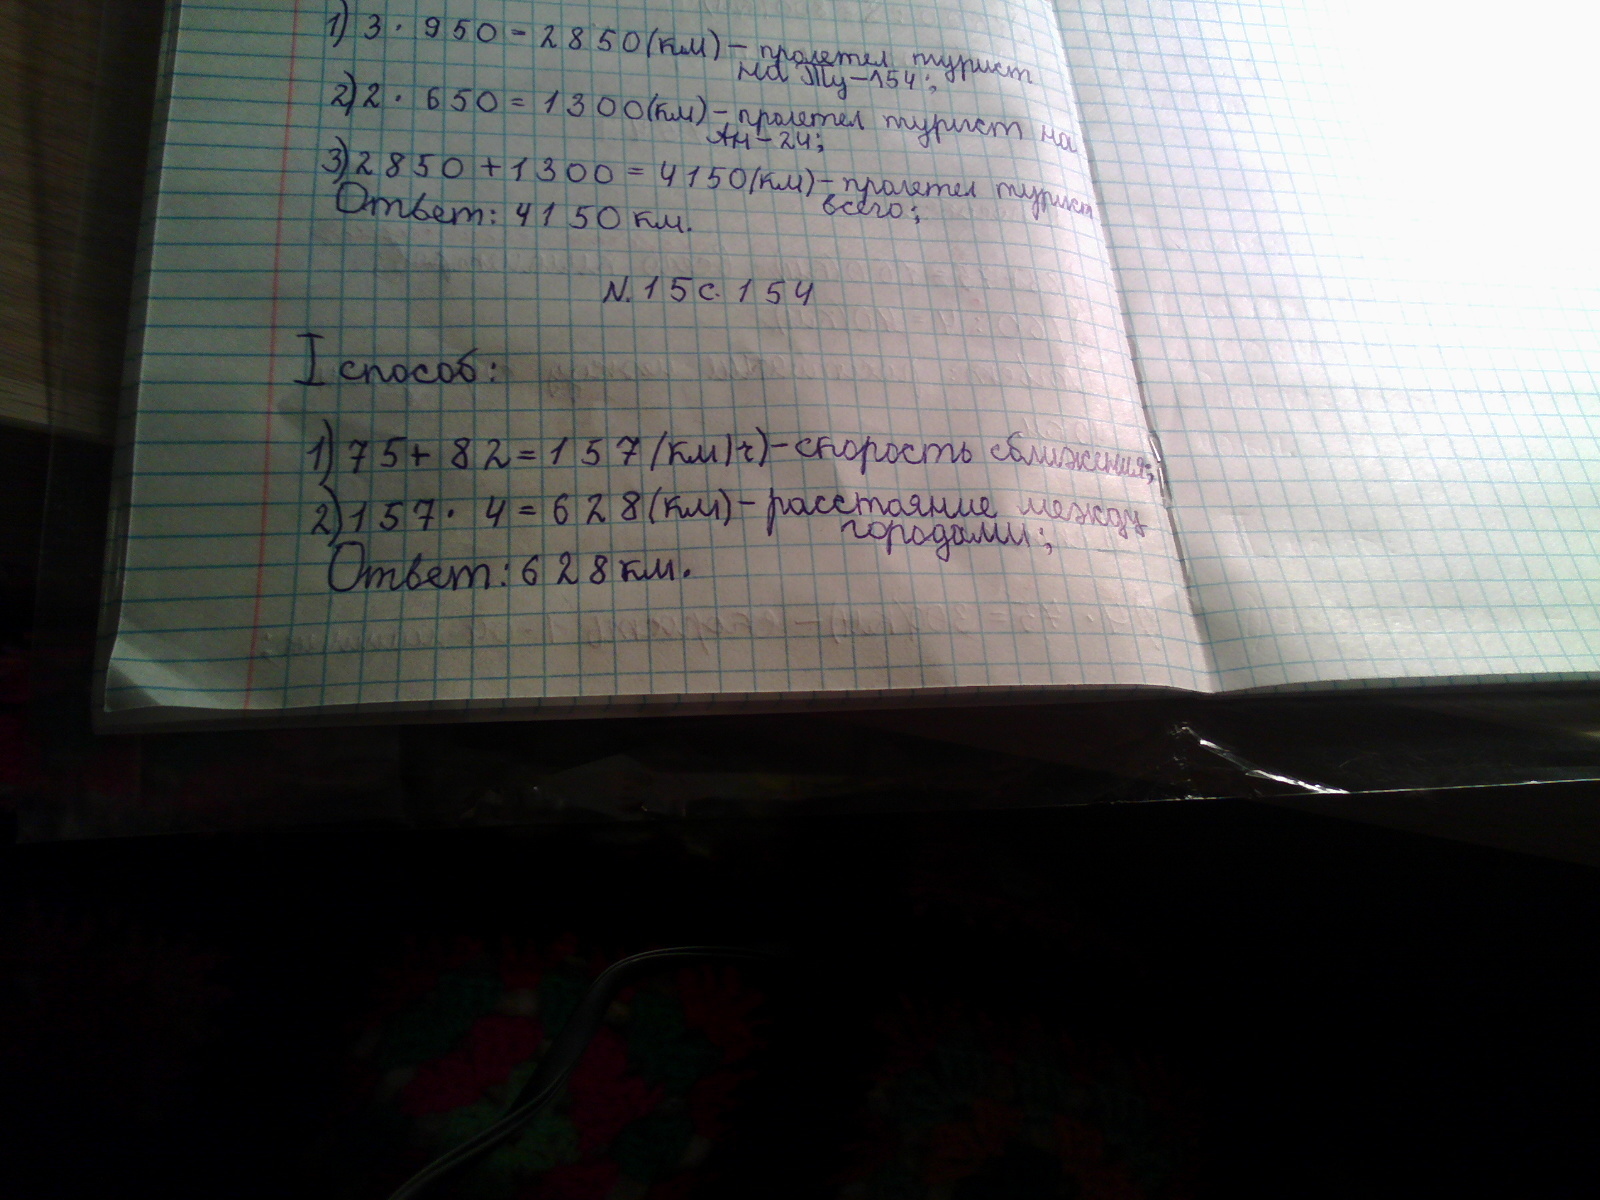 1) 3 · 950 = 2850 (км) – пролетел турист
на Ту-154;
2) 2 · 650 = 1300 (км) – пролетел турист на
Ан-24;
3) 2850 + 1300 = 4150 (км) – пролетел турист
всего;
Ответ: 4150 км.
N. 15 с. 154
I способ:
1) 75 + 82 = 157 (км/ч) – скорость сближения;
2) 157 · 4 = 628 (км) – расстояние между
городами;
Ответ: 628 км.